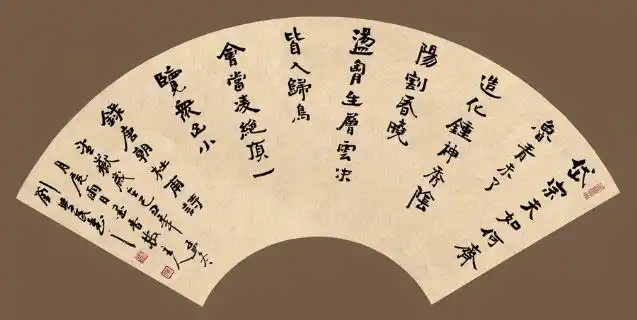 岱宗夫如何齊
魯青未了
造化鍾神秀陰
陽割昏曉
盪胷生層雲决
皆入歸鳥
會當凌絕頂一
覽衆山小
錄唐朝杜甫詩
望嶽歲在己丑年
月
劉